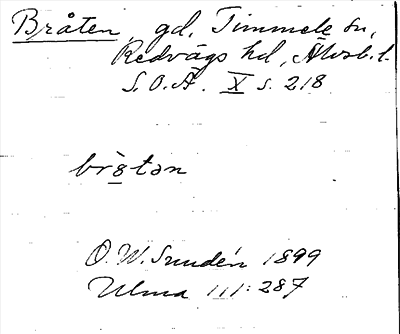 Bråten, gd, Timmele sn,
Redvägs hd, Älvsb. l.
S.O.Ä. X s. 218
brötən
O.W. Sundén 1899
Ulma 111:287